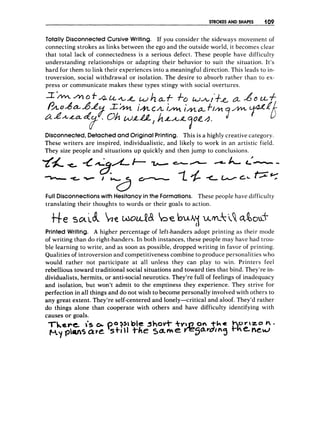 STROKES AND SHAPES 109
Totally Disconnected Cursive Writing. If you consider the sideways movement of
connecting strokes as links between the ego and the outside world, it becomes clear
that total lack of connectedness is a serious defect. These people have difficulty
understanding relationships or adapting their behavior to suit the situation. It's
hard for them to link their experiences into a meaningful direction. This leads to in-
troversion, social withdrawal or isolation. The desire to absorb rather than to ex-
press or communicate makes these types stingy with social overtures.
I'm not sure what to write about
Probably I'm incriminating myself
already. Oh well, here goes.
Disconnected, Detached and Original Printing. This is a highly creative category.
These writers are inspired, individualistic, and likely to work in an artistic field.
They size people and situations up quickly and then jump to conclusions.
Full Disconnections with Hesitancy in the Formations. These people have difficulty
translating their thoughts to words or their goals to action.
He said he would be busy until about
Printed Writing. A higher percentage of left-handers adopt printing as their mode
of writing than do right-handers. In both instances, these people may have had trou-
ble learning to write, and as soon as possible, dropped writing in favor of printing.
Qualities of introversion and competitiveness combine to produce personalities who
would rather not participate at all unless they can play to win. Printers feel
rebellious toward traditional social situations and toward ties that bind. They're in-
dividualists, hermits, or anti-social neurotics. They're full of feelings of inadequacy
and isolation, but won't admit to the emptiness they experience. They strive for
perfection in all things and do not wish to become personally involved with others to
any great extent. They're self-centered and lonely—critical and aloof. They'd rather
do things alone than cooperate with others and have difficulty identifying with
causes or goals.
There is a possible short trip on the horizon.
My plans are still the same regarding the new